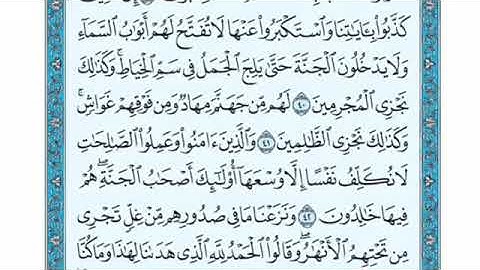 كَذَّبُوا۟ بِـَٔايَـٰتِنَا وَٱسْتَكْبَرُوا۟ عَنْهَا لَا تُفَتَّحُ لَهُمْ أَبْوَٰبُ ٱلسَّمَآءِ
وَلَا يَدْخُلُونَ ٱلْجَنَّةَ حَتَّىٰ يَلِجَ ٱلْجَمَلُ فِى سَمِّ ٱلْخِيَاطِ ۚ وَكَذَٰلِكَ
نَجْزِى ٱلْمُجْرِمِينَ ٤٠ لَهُم مِّن جَهَنَّمَ مِهَادٌ وَمِن فَوْقِهِمْ غَوَاشٍ ۚ
وَكَذَٰلِكَ نَجْزِى ٱلظَّـٰلِمِينَ ٤١ وَٱلَّذِينَ ءَامَنُوا۟ وَعَمِلُوا۟ ٱلصَّـٰلِحَـٰتِ
لَا نُكَلِّفُ نَفْسًا إِلَّا وُسْعَهَآ أُو۟لَـٰٓئِكَ أَصْحَـٰبُ ٱلْجَنَّةِ ۖ هُمْ
فِيهَا خَـٰلِدُونَ ٤٢ وَنَزَعْنَا مَا فِى صُدُورِهِم مِّنْ غِلٍّ تَجْرِى
مِن تَحْتِهِمُ ٱلْأَنْهَـٰرُ ۖ وَقَالُوا۟ ٱلْحَمْدُ لِلَّهِ ٱلَّذِى هَدَىٰنَا لِهَـٰذَا وَمَا كُنَّا